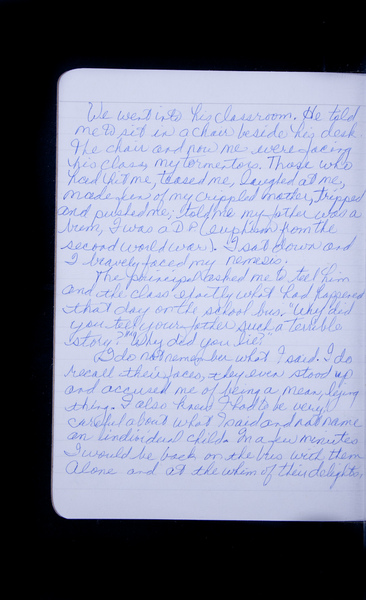 We went into his classroom. He told
me to sit in a chair beside his desk.
The chair and now me were facing
his class, my tormentors. Those who
had hit me, teased me, laughed at me,
made fun of my crippled mother, tripped
and pushed me, told me my father was a
bum, I was a D.P. (euphism from the
second world war). I sat down and
I bravely faced my nemesis.
The principal asked me to tell him
and the class exactly what had happened
that day on the school bus. "Why did
you tell your father such a terrible
story?" "Why did you lie?"
I do not remember what I said. I do
recall their faces, they even stood up
and accused me of being a mean, lying
thing. I also knew I had to be very
careful about what I said and not name
an individual child. In a few menutes
I would be back on the bus with them
alone and at the whim of their delights,